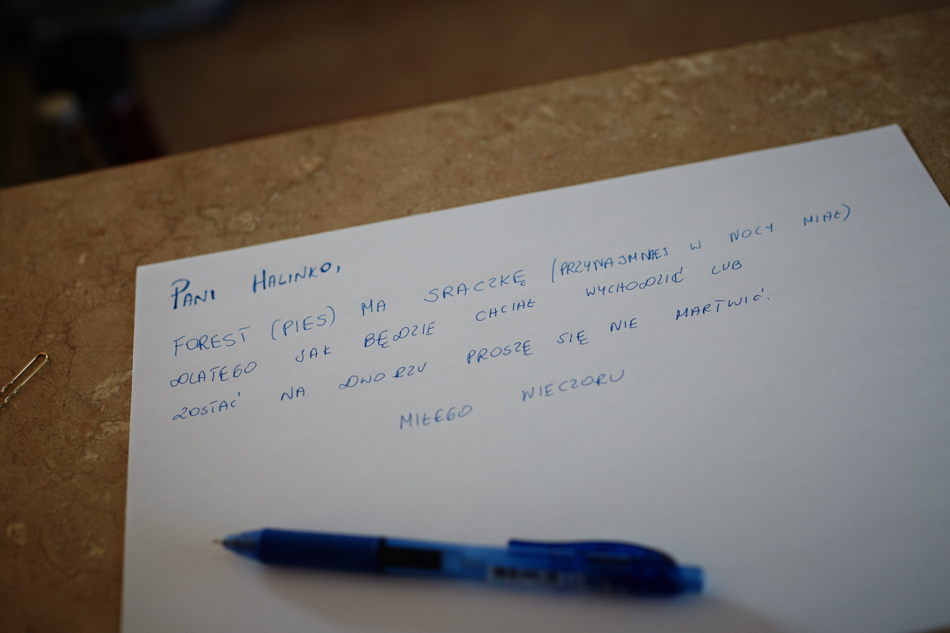 Pani Halinko,
FOREST (PIES) MA SRACZKĘ (PRZYNAJMNIEJ W NOCY MIAŁ)
DLATEGO JAK BĘDZIE CHCIAŁ WYCHODZIĆ LUB
ZOSTAĆ NA DWORZU PROSZĘ SIĘ NIE MARTWIĆ.
MIŁEGO WIECZORU